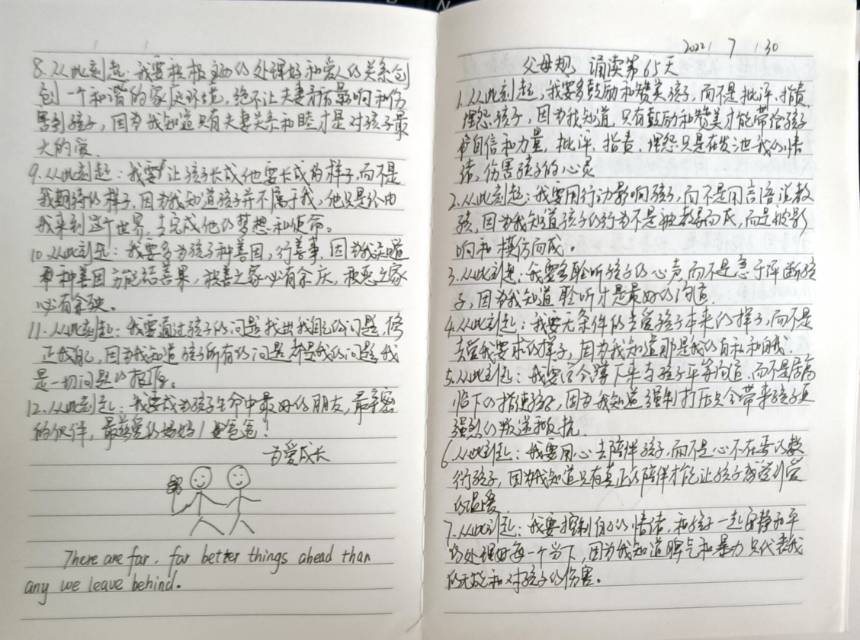 8.从此刻起:我要积极主动的处理好和爱人的关系创
创一个和谐的家庭环境,绝不让夫妻影响和伤
害到孩子,因为我知道只有夫妻关系和睦才是对孩子最
大的爱.
9.从此刻起:我要让孩子长成他要长成的样子,而不是
我期待的样子.因为我知道孩子并不属于我,他只是经由
我来到这个世界.去完成他的梦想和使命.
10.从此刻起:我要多为孩子种善因,行善事,因为我知道
种善因方能结善果,积善之家必有余庆,积恶之家
必有余殃。
11.从此刻起:我要通过孩子的问题找出我自己的问题,修
正我自己,因为我知道孩子所有的问题都是我的问题,我
是一切问题的根源。
12.从此刻起:我要成为孩子生命中最好的朋友,最亲密
的伙伴,最慈爱的妈妈/爸爸!
为爱成长
There are far, far better things ahead than
any we leave behind.
2022 7 30
父母规 诵读第65天
1.从此刻起,我要多鼓励和赞美孩子,而不是批评,指责
埋怨孩子,因为我知道,只有鼓励和赞美才能带给孩子
自信和力量,批评,指责,埋怨只是在发泄我的情
绪,伤害孩子的心灵
2.从此刻起:我要用行动影响孩子,而不是用言语说教
孩,因为我知道孩子的行为不是被教导而成,而是被影
响和模仿而成。
3.从此刻起:我要多聆听孩子的心声,而不是急于评断孩
子,因为我知道聆听才是最好的沟通
4.从此刻起:我要无条件的去爱孩子本来的样子,而不是
去爱我要求的样子,因为我知道那是我的自私和自我.
5.从此刻起:我要完全蹲下来与孩子平等沟通,而不是居高
临下的指使孩子,因为我知道强制打压只会带来孩子更
强烈的叛逆和反抗.
6.从此刻起:我要用心去陪伴孩子,而不是心不在焉的敷
衍孩子,因为我知道只有真正的陪伴才能让孩子感觉到爱
的温暖
7.从此刻起:我要控制自己的情绪,和孩子一起安静和平
的处理好每一个当下,因为我知道脾气和暴力只代表我
的无能和对孩子的伤害。